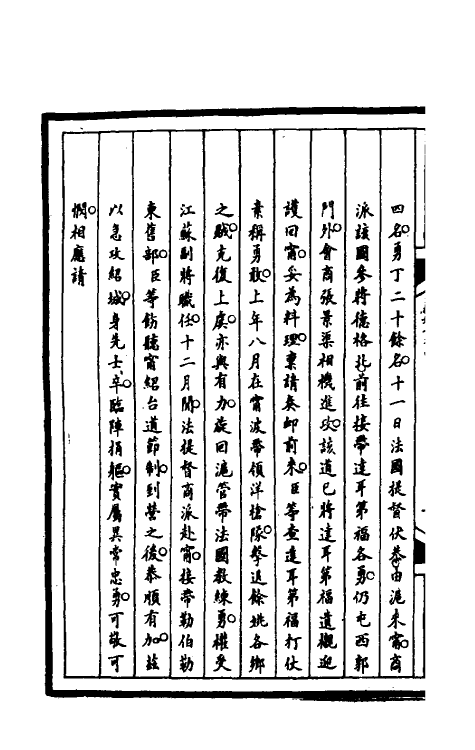 四名勇丁二十餘名十一日法國提督伏恭由滬來甯商
派該國參將德格北前往接帶達耳第福各勇仍屯西郭
門外會商張景渠相機進攻該道已將達耳第福遺櫬迎
護回甯妥為料理稟請奏卹前來臣等查達耳第福打仗
素稱勇敢上年八月在甯波帶領洋槍隊擊退餘姚各鄉
之賊克復上虞亦與有力旋回滬管帶法國教練勇權受
江蘇副將職任十二月間法提督商派赴甯接帶勒伯勒
東舊部臣等飭聽甯紹台道節制到營之後恭順有加茲
以急攻紹城身先士卒臨陣捐軀實屬異常忠勇可敬可
憫相應請